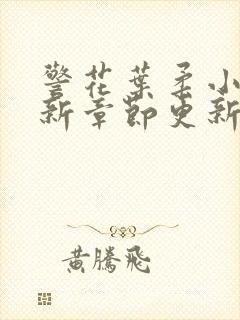 警花葉柔小
新章節更新
黃騰飛